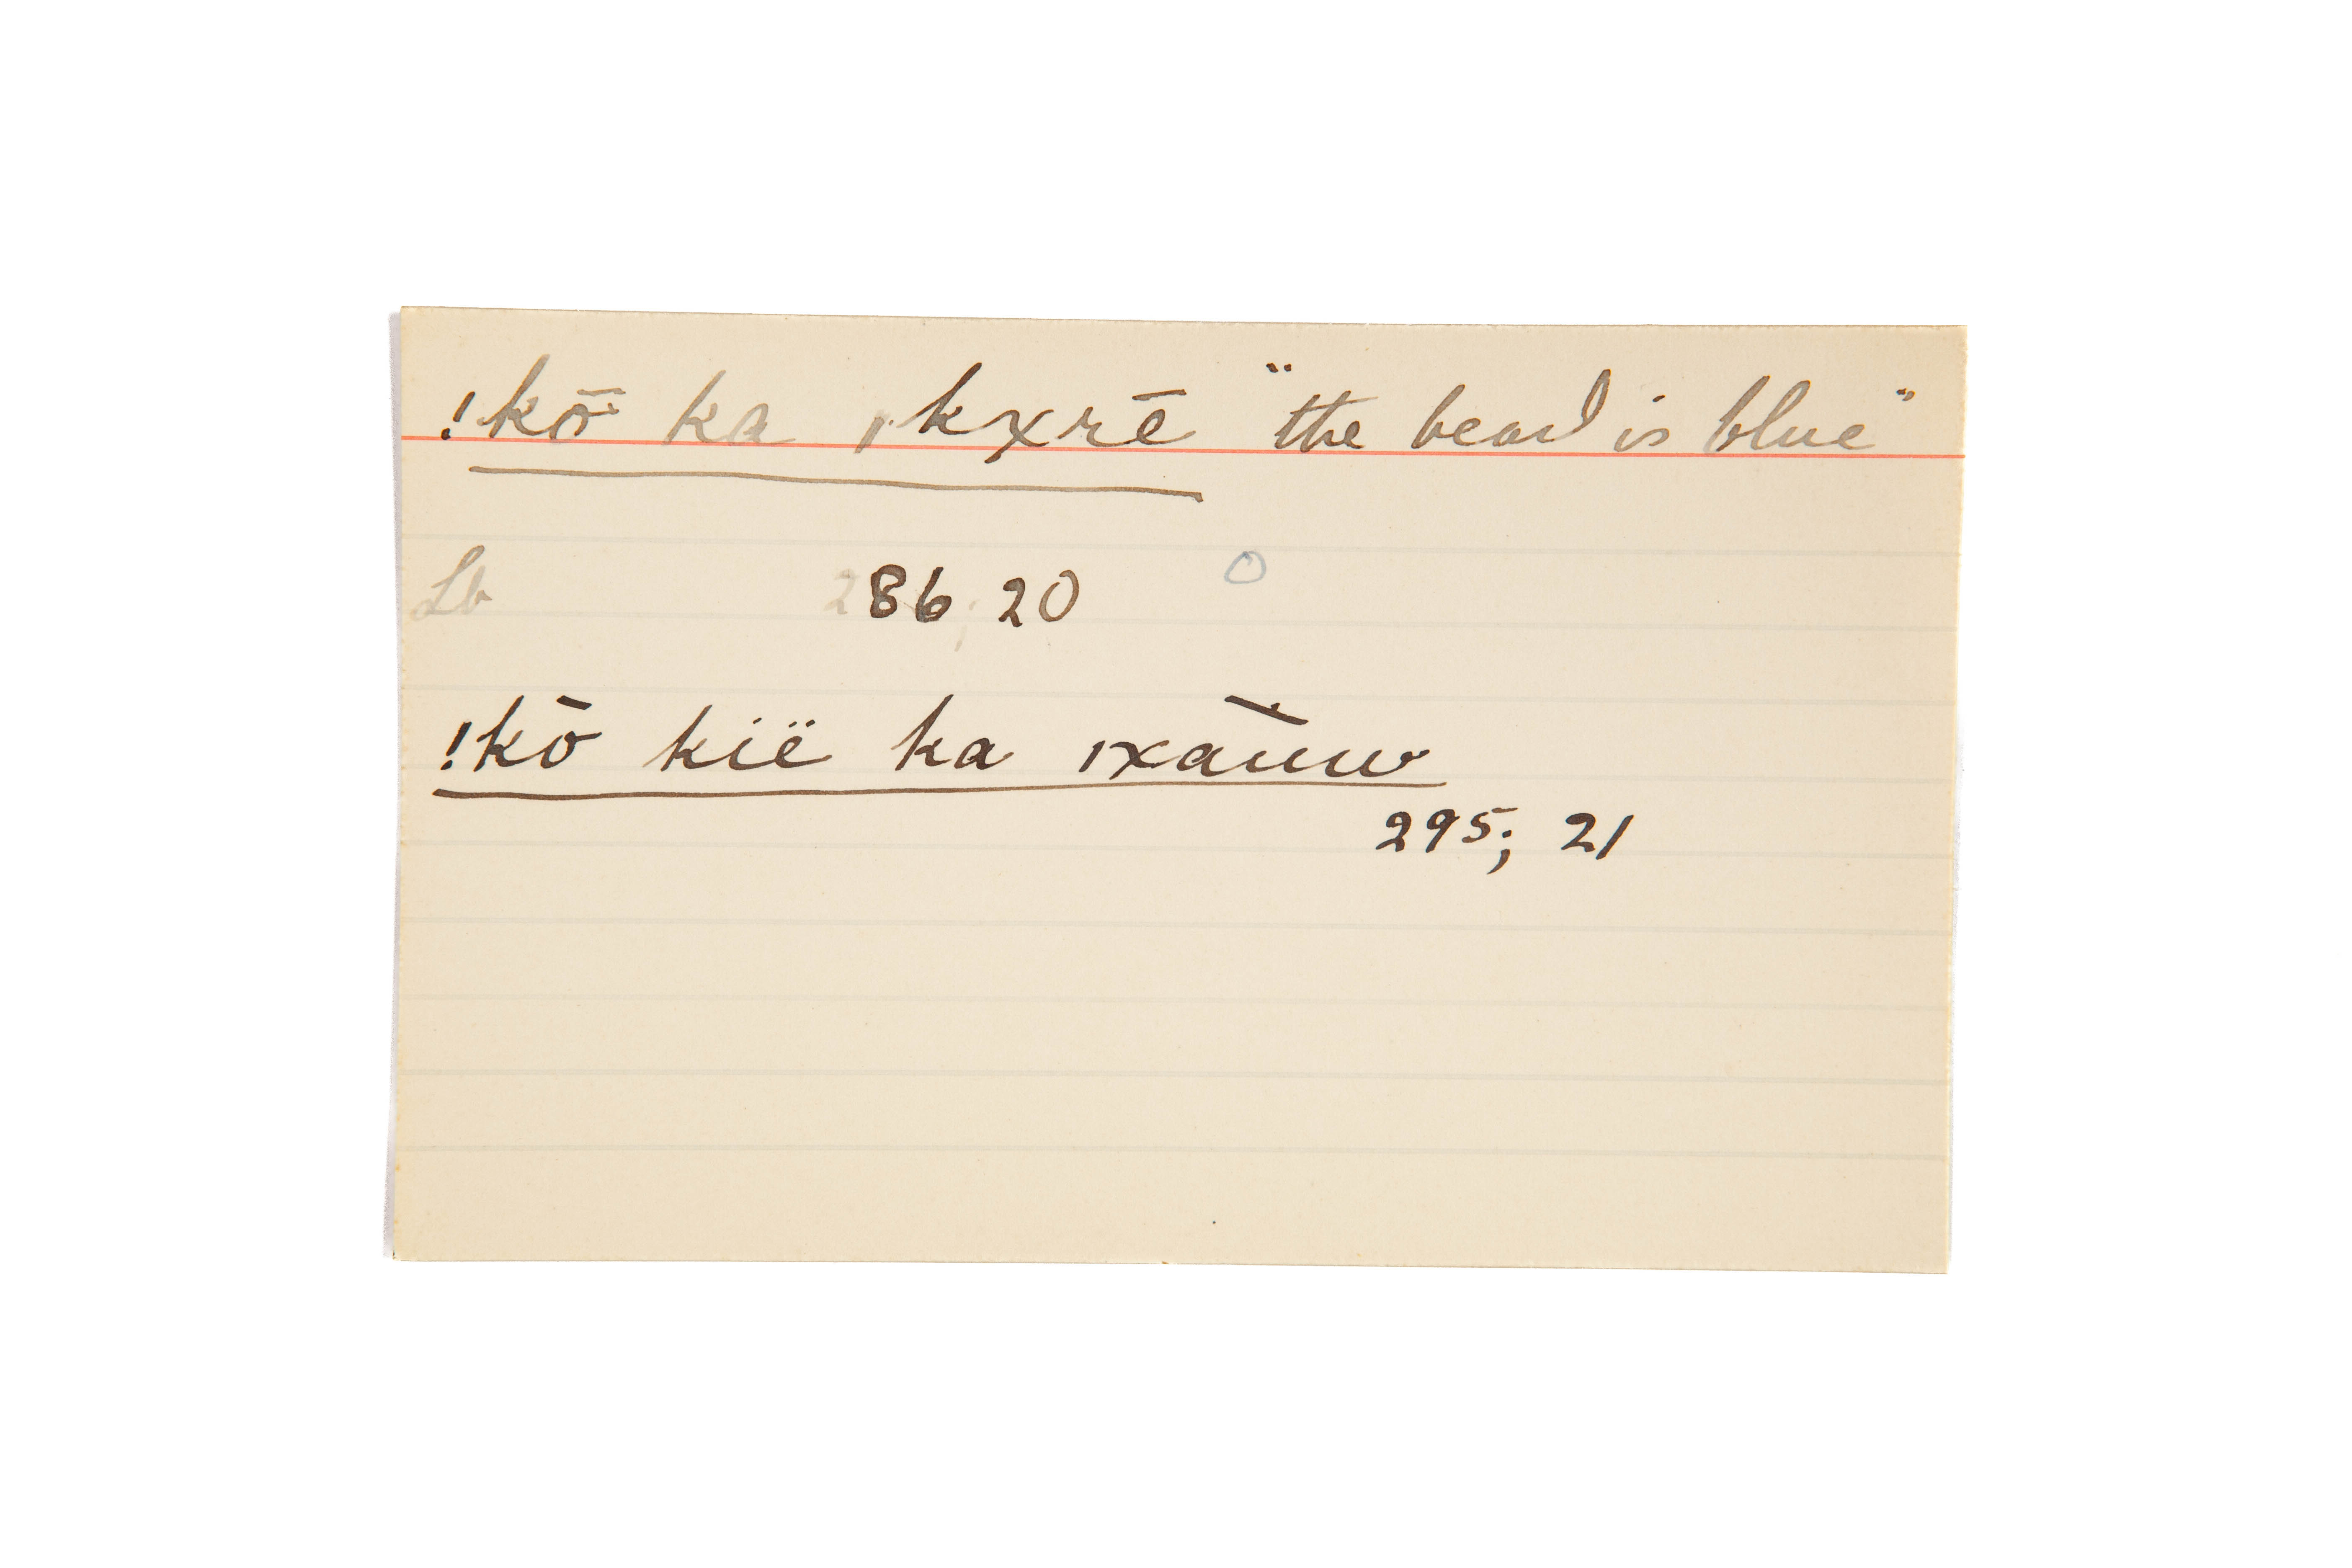 !kō ka ǀkxrē "the bead is blue"
Lb 286; 20 O
!kō kië ka ǀxāūw
295; 21